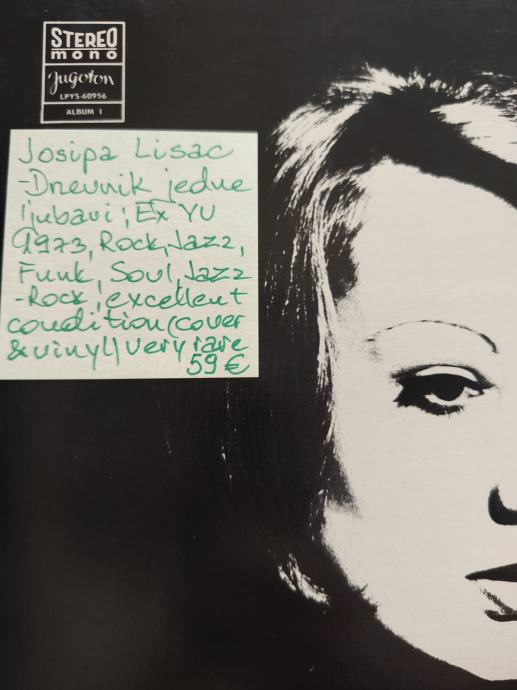 STEREO
mono
Jugoton
LPYS-60956
ALBUM 1
Josipa Lisac
-Dnevnik jedne
ljubavi, Ex YU
1973, Rock, Jazz,
Funk, Soul, Jazz
-Rock, excellent
condition (cover
& vinyl) very rare
59 €